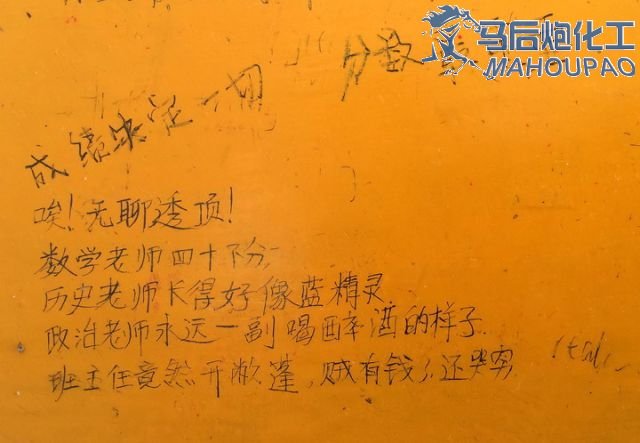 马后炮化工
MAHOUPAO
分数
成绩决定一切
唉！无聊透顶！
数学老师四十下分，
历史老师长得好像蓝精灵
政治老师永远一副喝醉酒的样子.
班主任竟然开敞篷，贼有钱了还哭穷